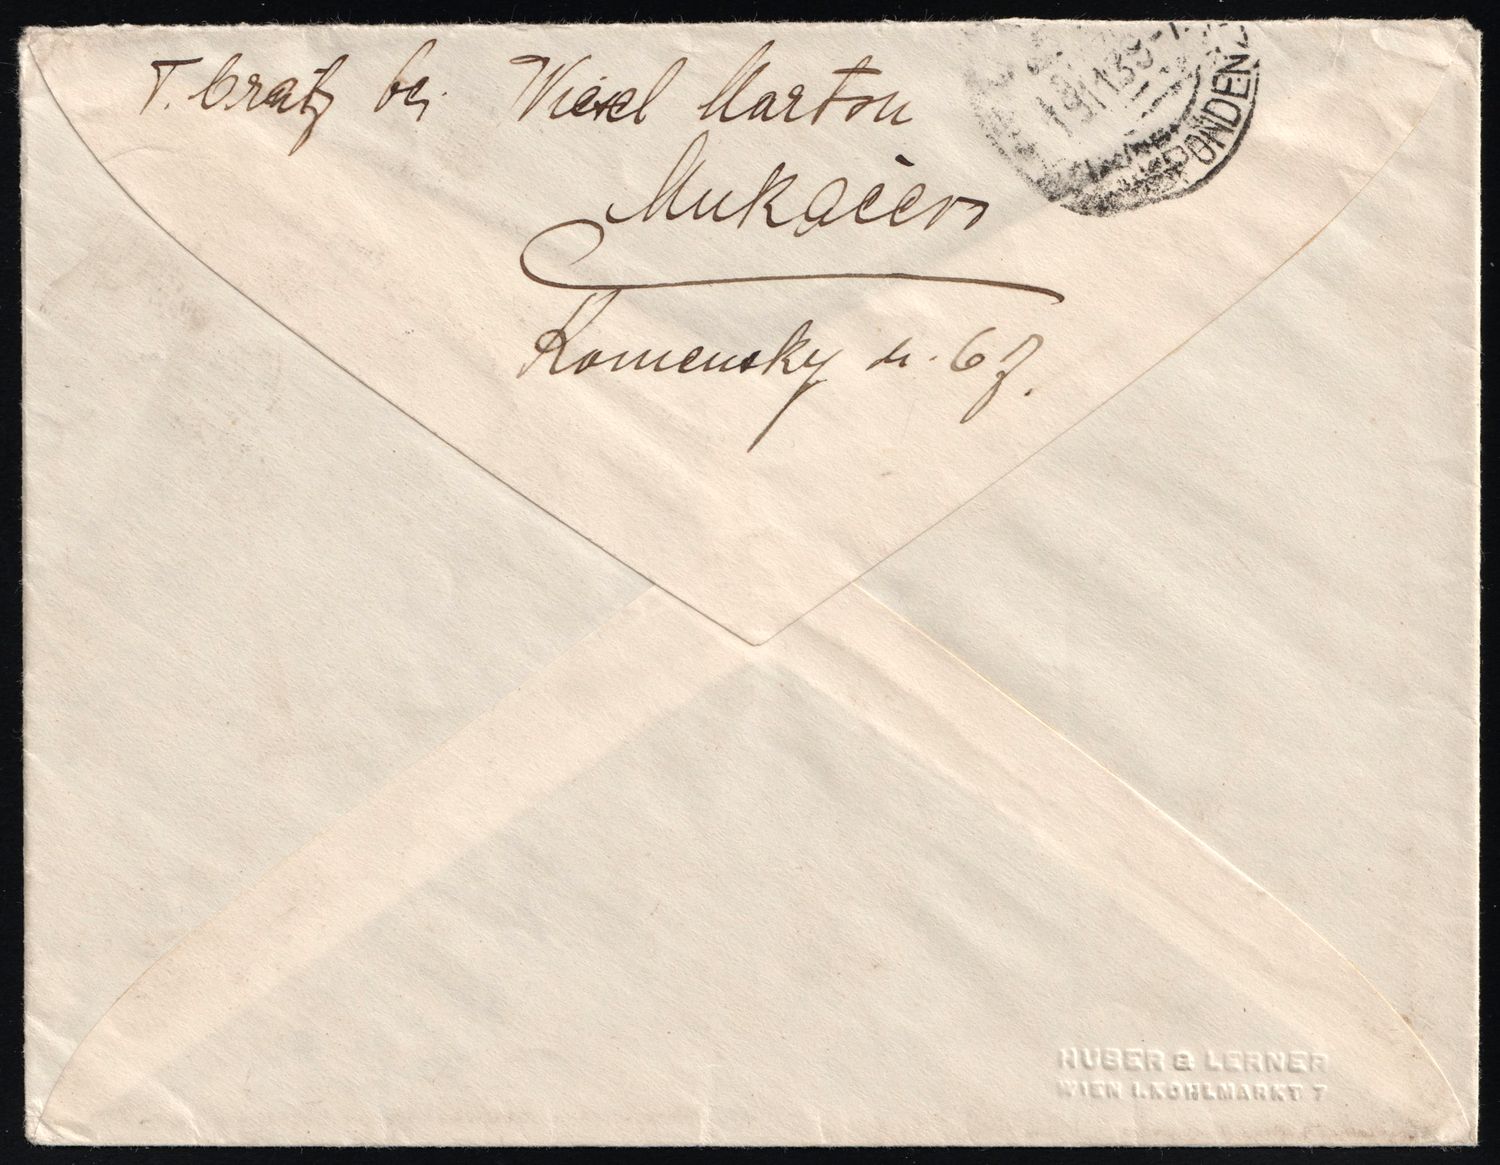 T. Gratz bei Wiesel Marton
Mukačevo
Komensky u. 67.
19 II 35
PONDEN
HUBER & LERNER
WIEN I. KOHLMARKT 7